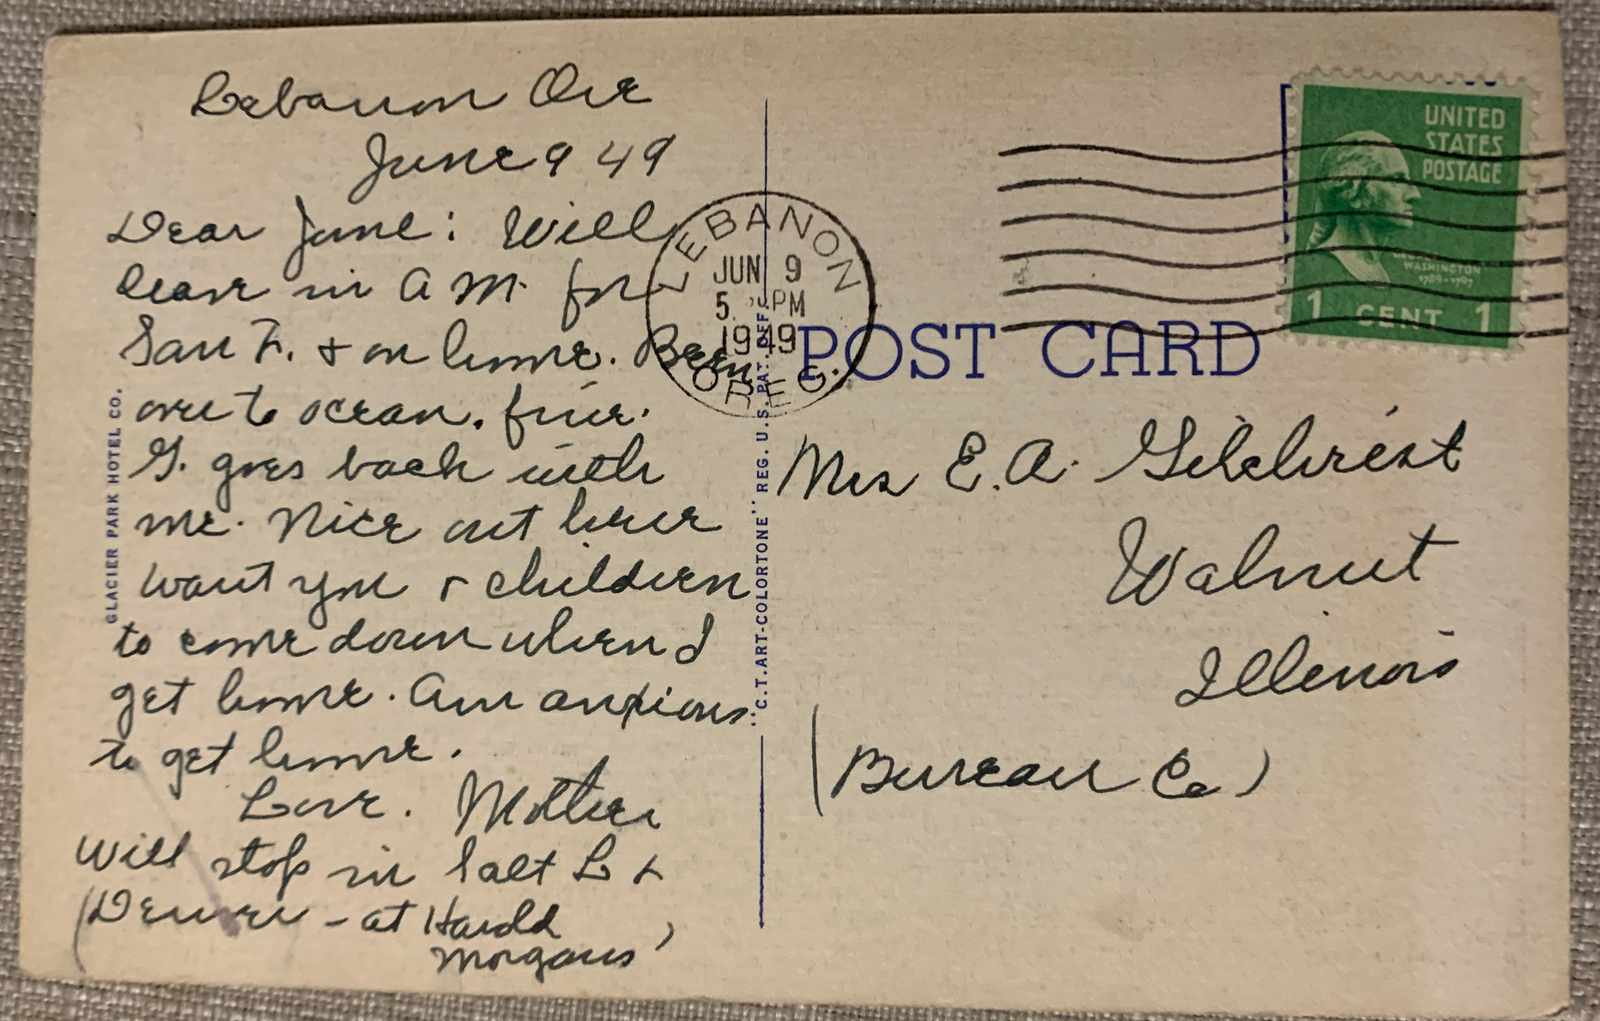 Lebanon Ore
June 9 49
Dear June: Will
leave in A M. for
San F. & on home. Been
over to ocean. fine.
G. goes back with
me. Nice out here
want you & children
to come down when I
get home. Am anxious
to get home.
Love. Mother
Will stop in Salt L &
(Denver - at Harold
Morgans)
GLACIER PARK HOTEL CO.
"C.T. ART-COLORTONE" REG. U.S. PAT. OFF.
LEBANON
JUN 9
5 PM
1949
OREG.
POST CARD
UNITED
STATES
POSTAGE
WASHINGTON
1789-1797
1 CENT 1
Mrs E. A. Gilchrist
Walnut
Illinois
(Bureau Co)